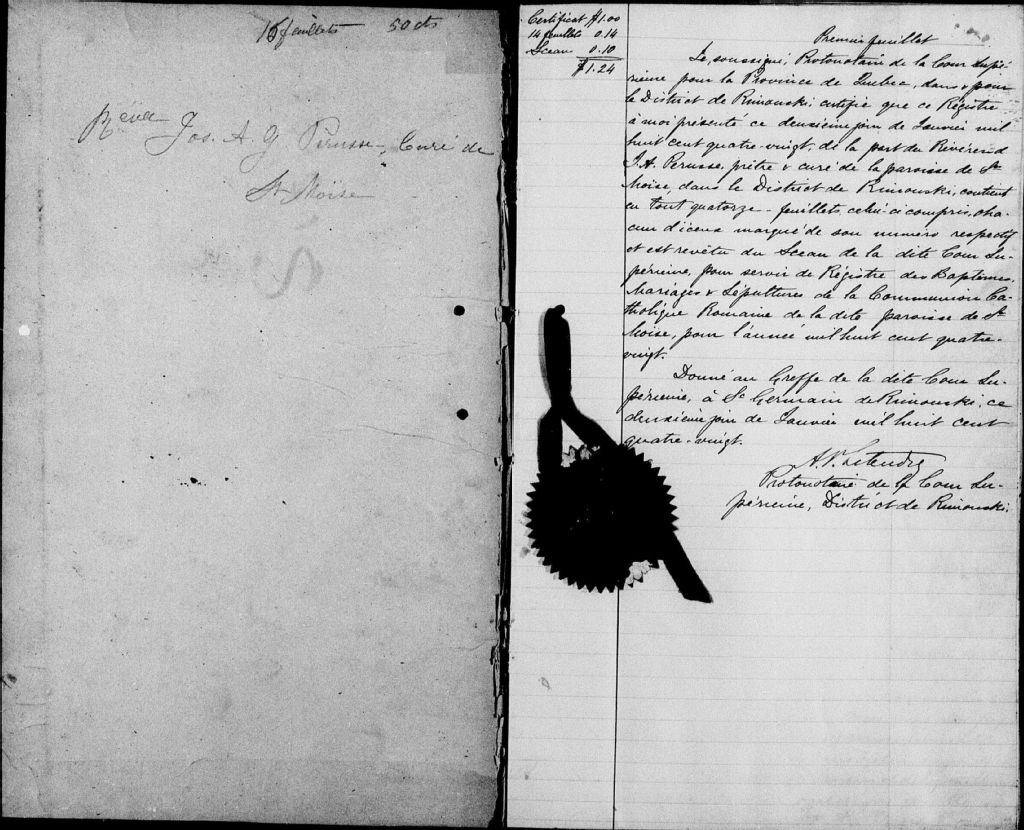 15 feuillets 50 cts
Révd
Jos. A. G. Perusse - Curé de
St Moïse
Certificat $1.00
14 feuillets 0.14
Sceau 0.10
$1.24
Premier feuillet
Je, soussigné, Protonotaire de la Cour Supé-
rieure pour la Province de Quebec, dans & pour
le District de Rimouski certifie que ce Régistre
à moi présenté ce deuxième jour de Janvier mil
huit cent quatre-vingt, de la part du Révérend
J. A. Perusse, prêtre & curé de la paroisse de St
Moïse, dans le District de Rimouski, contient
en tout quatorze - feuillets, celui-ci compris, cha-
cun d'iceux marqué de son numéro respectif
et est revêtu du Sceau de la dite Cour Su-
périeure, pour servir de Régistre des Baptêmes,
Mariages & Sépultures de la Communion Ca-
tholique Romaine de la dite paroisse de St
Moïse, pour l'année mil huit cent quatre-
vingt.
Donné au Greffe de la dite Cour Su-
périeure, à St Germain de Rimouski, ce
deuxième jour de Janvier mil huit cent
quatre-vingt.
A. P. Letendre
Protonotaire de la Cour Su-
périeure, District de Rimouski.